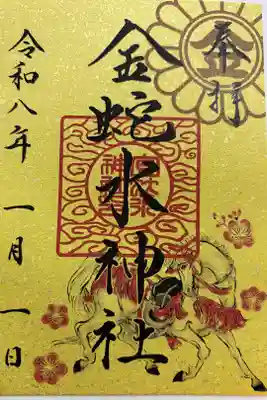 奉拝
金蛇水神社
令和八年 一月 一日